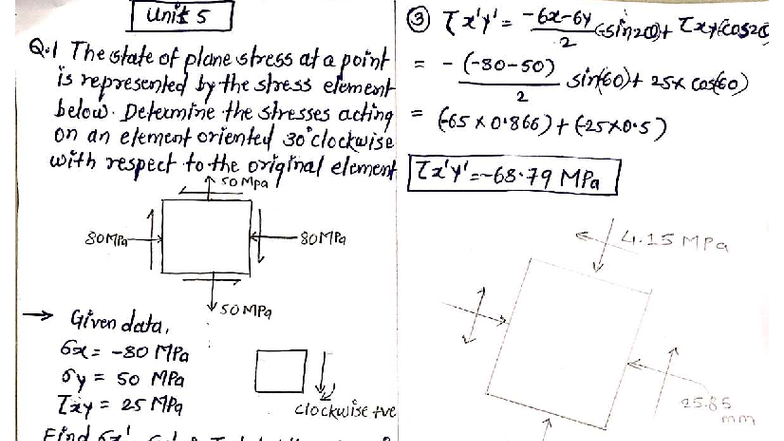 Unit 5
Q.1 The state of plane stress at a point
is represented by the stress element
below. Determine the stresses acting
on an element oriented 30° clockwise
with respect to the original element
50 Mpa
80 MPa
80 MPa
50 MPa
→ Given data,
σx = -80 MPa
σy = 50 MPa
τxy = 25 MPa
clockwise +ve
Find σx'
③ τx'y' = -σx-σy/2 (sin2θ) + τxy(cos2θ
= - (-80-50)/2 sin(60) + 25x cos(60)
= (-65 x 0.866) + (-25x0.5)
τx'y' = -68.79 MPa
4.15 MPa
25.85
mm